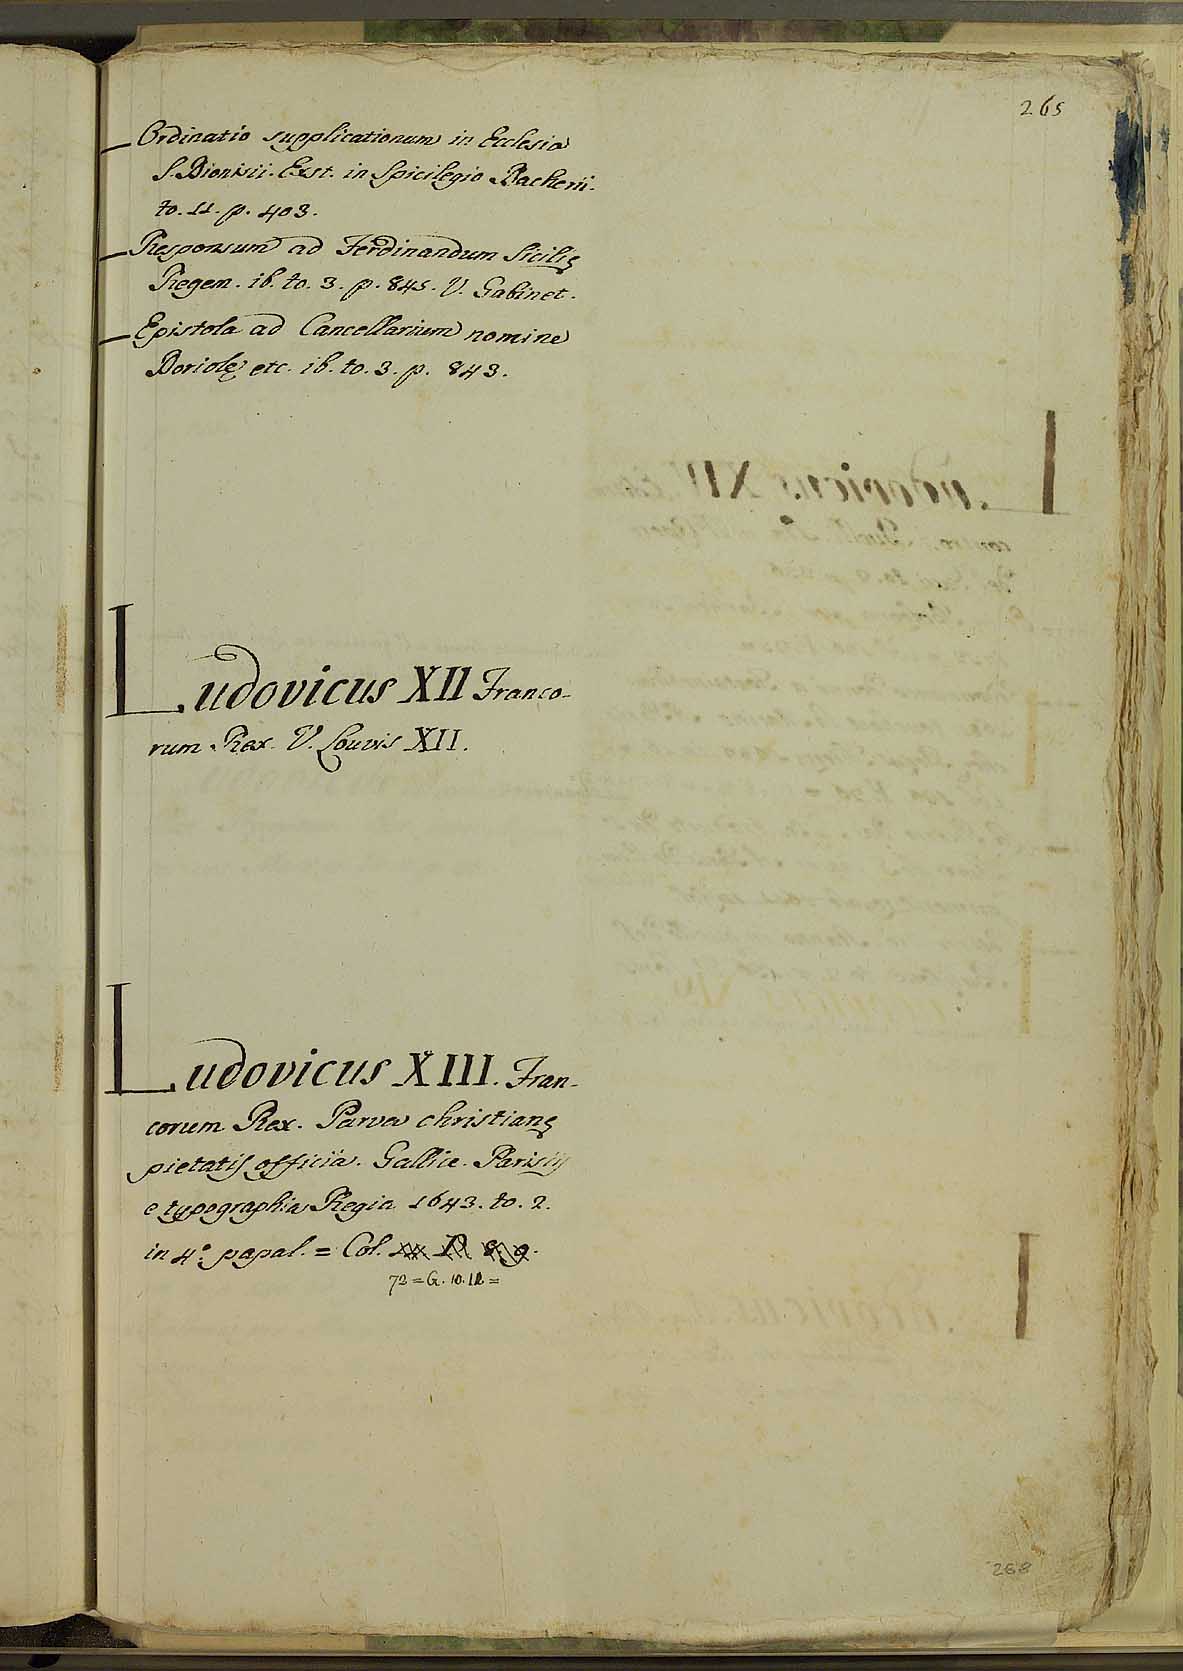 265
Ordinatio supplicationum in Ecclesia
S. Dionisii. Exst. in Spicilegio Dacherii.
to. 11. p. 403.
Responsum ad Ferdinandum Siciliȩ
Regem. ib. to. 3. p. 845. V. Gabinet.
Epistola ad Cancellarium nomine
Doriolȩ etc. ib. to. 3. p. 843.
Ludovicus XII Franco-
rum Rex. V. Louvis XII.
Ludovicus XIII. Fran-
corum Rex. Parva christianȩ
pietatis officia. Gallice. Parisiis
e typographia Regia 1643. to. 2.
in 4º. papal. = Col.
72 = G. 10. 12 =
268